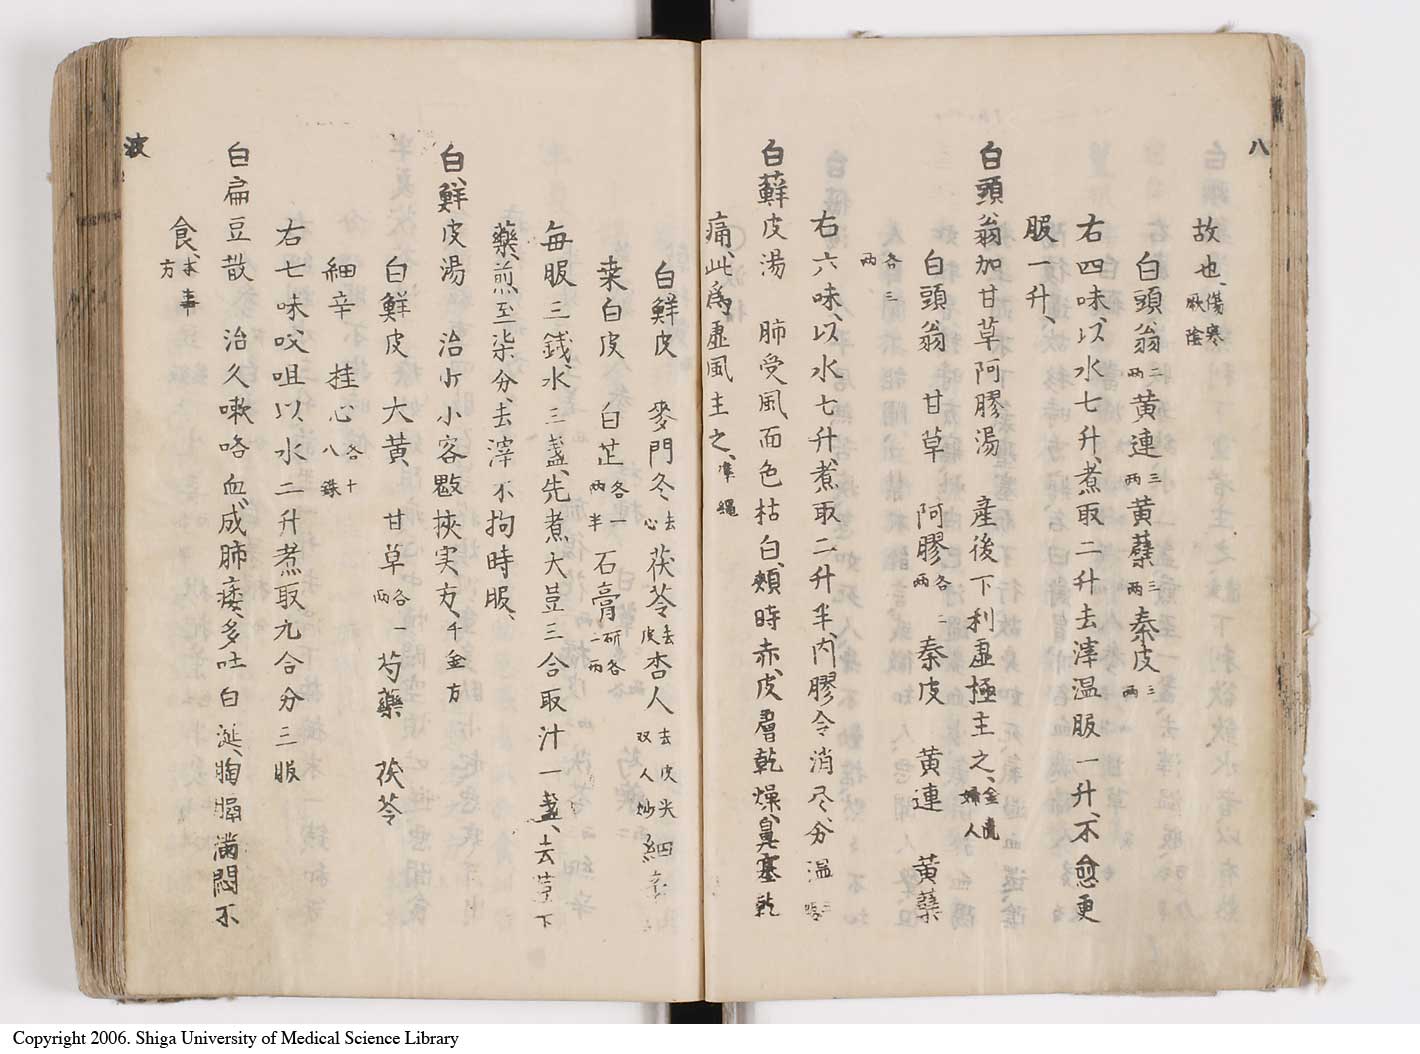 八
故也、傷寒厥陰
白頭翁二両黄連三両黄蘗三両秦皮三両
右四味、以水七升、煮取二升去滓温服一升、不愈更
服一升、
白頭翁加甘草阿膠湯 産後下利虚極主之、金匱婦人
白頭翁 甘草 阿膠各二両 秦皮 黄連 黄蘗各三両
右六味、以水七升、煮取二升半、内膠令消尽、分温三服
白蘚皮湯 肺受風、面色枯白、頬時赤、皮膚乾燥、鼻塞乾
痛、此為虚風主之、準縄
白鮮皮 麥門冬去心茯苓去皮杏人去皮尖双人炒細辛
桒白皮 白芷各一両半石膏研各二両
毎服三銭、水三盞、先煮大豆三合取汁一盞、去荳下
藥、煎至柒分、去滓不拘時服、
白鮮皮湯 治小小客斁挾実方、千金方
白鮮皮大黄 甘草各一両 芍藥 茯苓
細辛 桂心各十八銖
右七味㕮咀以水二升煮取九合分三服
白扁豆散 治久嗽咯血、成肺痿、多吐白涎、胸膈満悶不
食、本事方
波
Copyright 2006. Shiga University of Medical Science Library